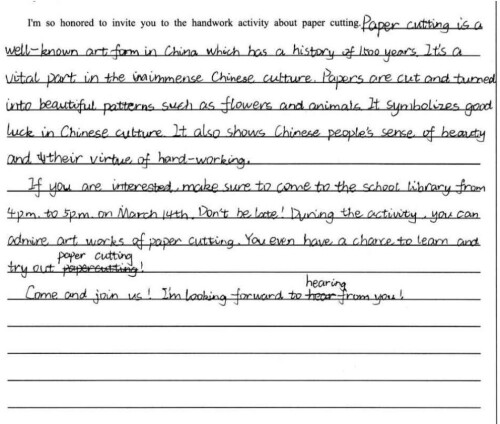 I'm so honored to invite you to the handwork activity about paper cutting. Paper cutting is a
well-known art form in China which has a history of 1500 years. It's a
vital part in the immense Chinese culture. Papers are cut and turned
into beautiful patterns such as flowers and animals. It symbolizes good
luck in Chinese culture. It also shows Chinese people's sense of beauty
and their virtue of hard-working.
If you are interested, make sure to come to the school library from
4p.m. to 5p.m. on March 14th. Don't be late! During the activity, you can
admire art works of paper cutting. You even have a chance to learn and
paper cutting
try out papercutting!
hearing
Come and join us! I'm looking forward to hear from you!